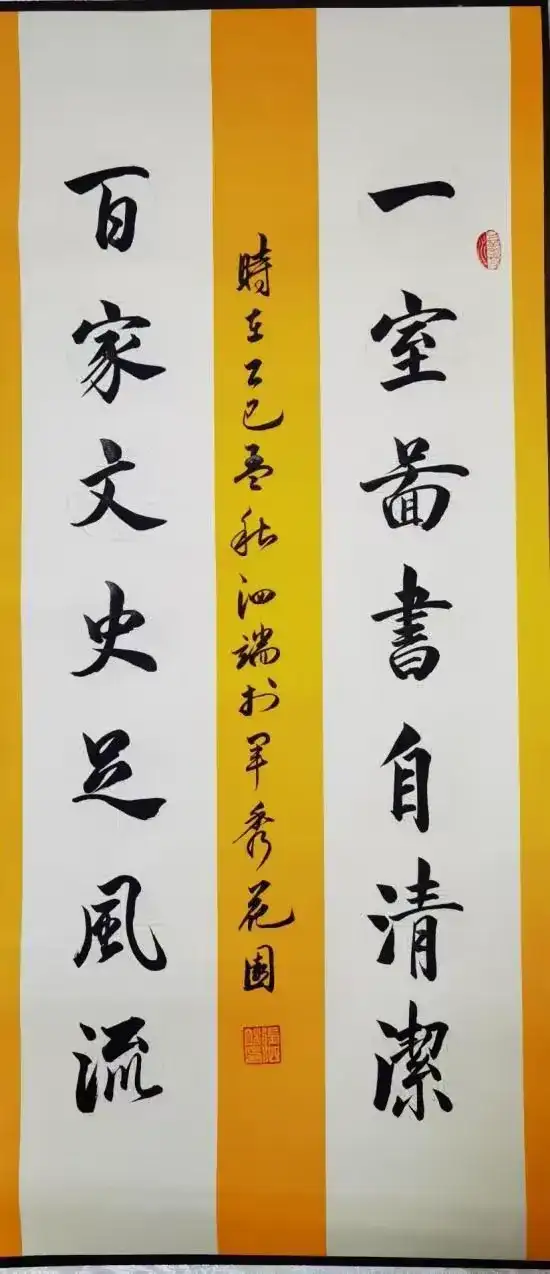 一室啚書自清潔
時在乙巳孟秋泗端於軍秀花園
百家文史足風流